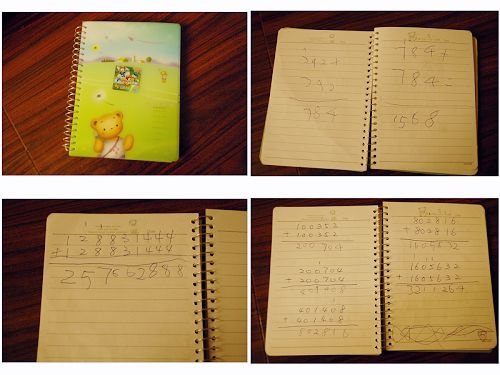 392+
392
784
784+
784
1568
128831444
+128831444
257562888
100352
+ 100352
200704
1
200704
+ 200704
401408
1
401408
+ 401408
802816
802816
+ 802816
1605632
1 11
1605632
+ 1605632
3211264